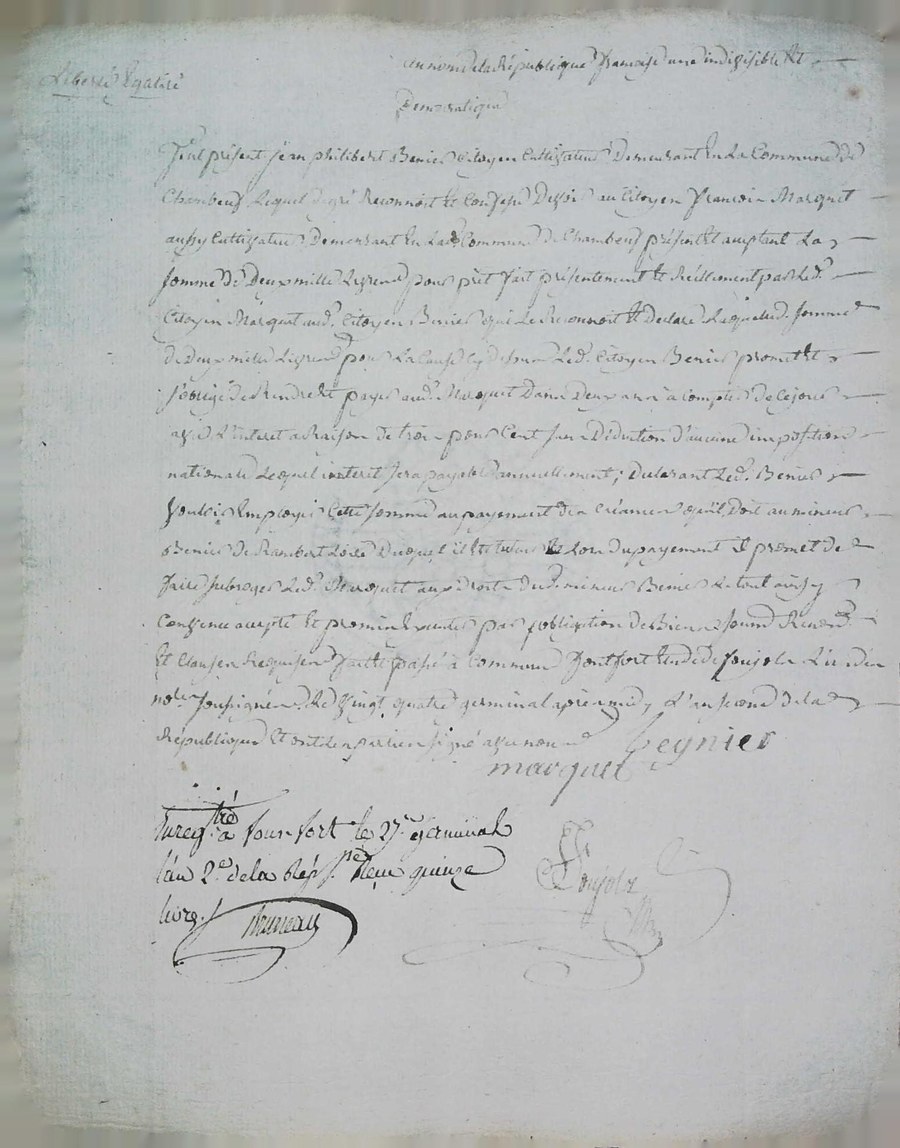 Liberté Egalité
au nom de la République françoise une indivisible Et
Democratique
fut présent jean philibert Benier Citoyen Cultivateur Demeurant En La Commune de
Chambeuf Lequel de gré Reconnoit Et Confesse Devoir au Citoyen francois Marquet
aussy Cultivateur Demeurant En Lad. Commune de Chambeuf présent Et acceptant La
somme de Deux mille Livres pour prêt fait présentement Et Réellement par Led.
Citoyen Marquet aud. Citoyen Benier qui Le Reconnoit Et Declare Laquelle d. somme
de Deux mille Livres pour La Cause Cy dessus Led. Citoyen Benier promet Et
s'oblige de Rendre Et payer aud. Marquet Dans deux ans à compter de Ce jour
avec L'interet a Raison de trois pour Cent sans Déduction d'aucune imposition
nationale Lequel interet sera payable annuellement; Declarant Led. Benier
Vouloir Employer Cette somme au payement des Créances qu'il Doit au mineur
Benier de Rambert Loire Duquel il Est tuteur Et Lors du payement il promet de
faire subroger Led. Marquet aux droits dud. mineur Benier Le tout ainsy
Convenu accepté Et promis Executer par obligation de Biens soumd. Renond.
Et Clauses Requises fait Et passé à Commune fontfort Etude de Soujole L'un des
nores. soussignés Le Vingt quatre germinal après midy L'an second de la
République Et ont Les parties signé avec nous
marquet beynier
Enregtré à fonsfort le 27. germinal
l'an 2.e de la Rép. Reçu quinze
livres.
Bruneau
Soujole